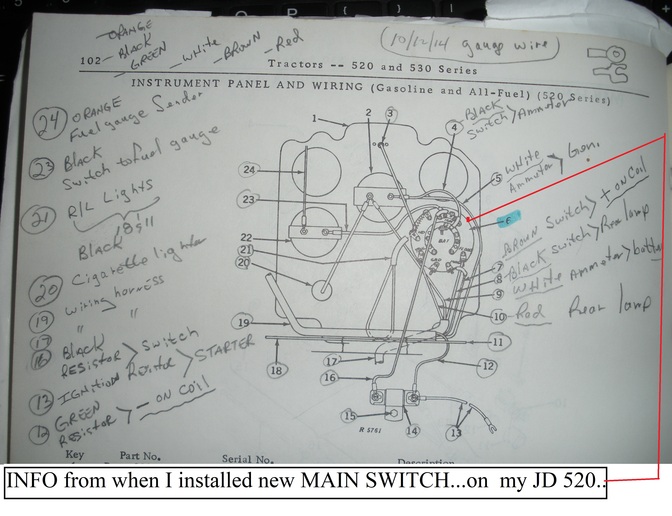 ORANGE
BLACK
GREEN
White
BROWN
Red
(10/12/14 gauge wire)
102
Tractors -- 520 and 530 Series
INSTRUMENT PANEL AND WIRING (Gasoline and All-Fuel) (520 Series)
24 ORANGE
Fuel gauge Sender
23 Black
Switch to fuel gauge
21 R/L Lights
Black
20 Cigarette lighter
19 wiring harness
17 " "
BLACK
RESISTOR > Switch
13 IGNITION Resistor > STARTER
GREEN
RESISTOR > - ON Coil
BLACK
Switch > Ammeter
White
Ammeter > Gen.
BROWN Switch > + ON Coil
BLACK Switch > Rear lamp
White Ammeter > battery
Red Rear lamp
1
2
3
4
5
6
7
8
9
10
11
12
13
14
15
16
17
18
19
20
21
22
23
24
R 5761
Key Part No. Serial No. Description
INFO from when I installed new MAIN SWITCH...on my JD 520..